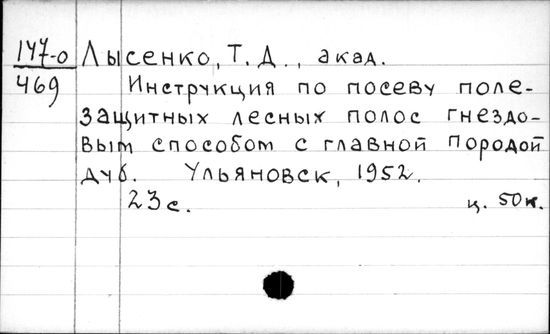 147-о Лысенко, Т. Д., акад.
469 Инструкция по посеву поле-
защитных лесных полос гнездо-
вым способом с главной породой
дуб. Ульяновск, 1952.
23 с. ц. 50 к.